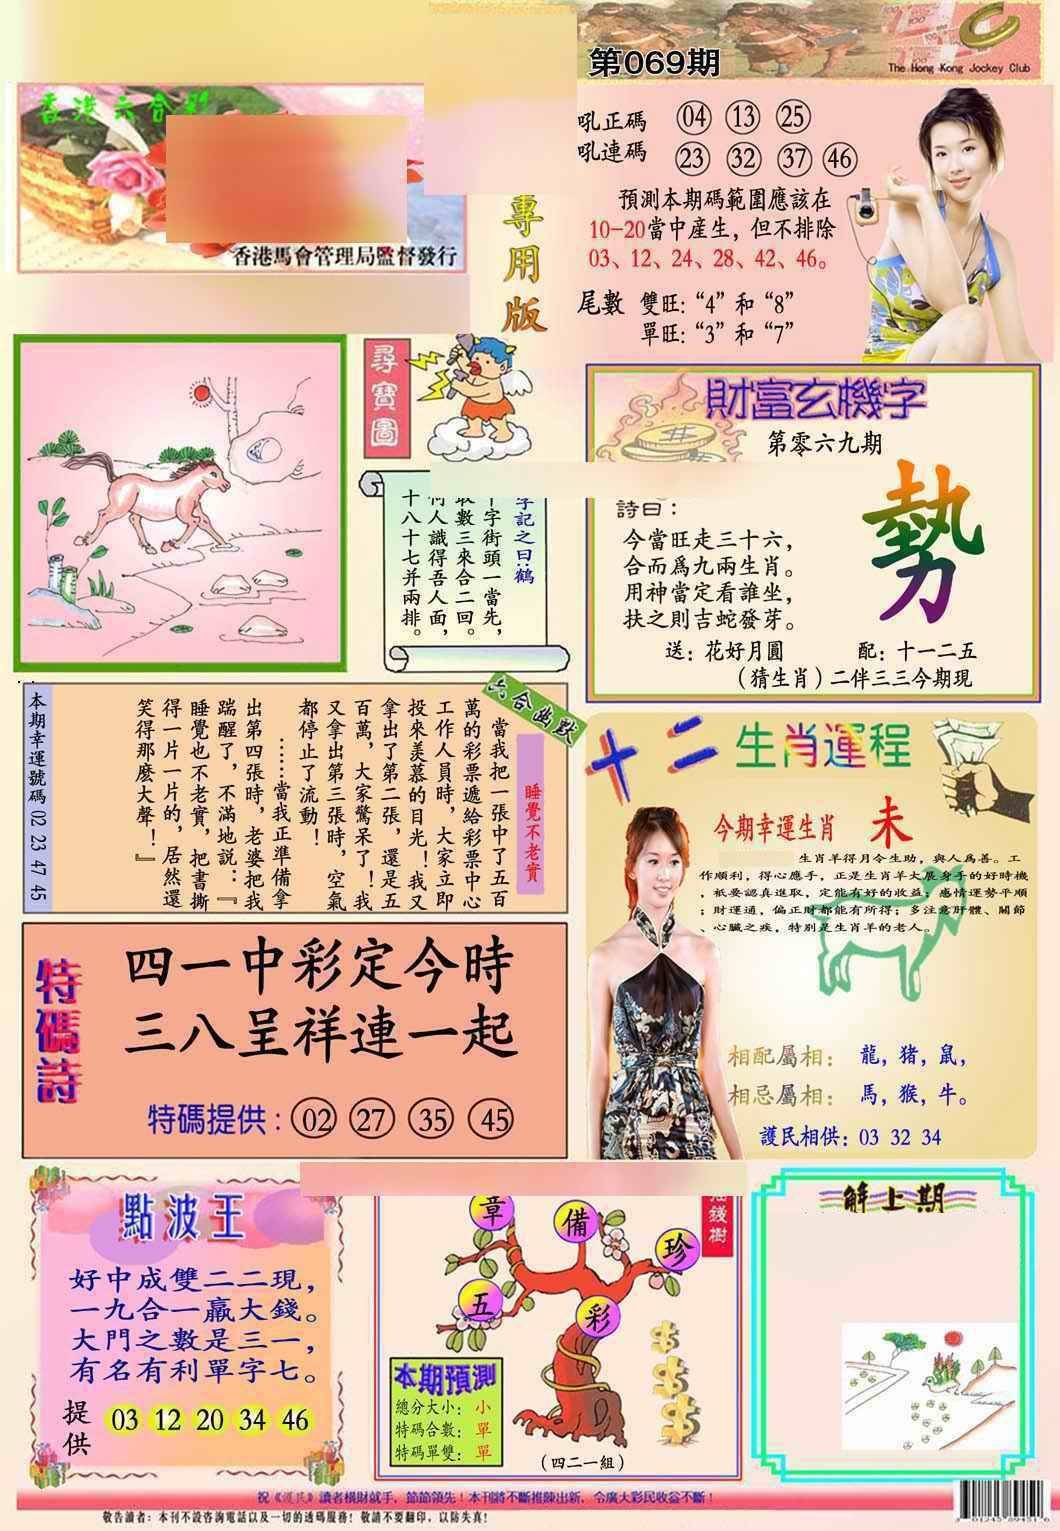 第069期
The Hong Kong Jockey Club
香港六合彩
香港馬會管理局監督發行
專用版
吼正碼 04 13 25
吼連碼 23 32 37 46
預測本期碼範圍應該在
10-20當中産生，但不排除
03、12、24、28、42、46。
尾數 雙旺:“4”和“8”
單旺:“3”和“7”
尋寶圖
字記之曰:鶴
十字街頭一當先，
取數三來合二回。
何人識得吾人面，
十八十七并兩排。
財富玄機字
第零六九期
詩曰：
今當旺走三十六，
合而爲九兩生肖。
用神當定看誰坐，
扶之則吉蛇發芽。
勢
送：花好月圓 配：十一二五
（猜生肖）二伴三三今期現
六合幽默
睡覺不老實
當我把一張中了五百
萬的彩票遞給彩票中心
工作人員時，大家立即
投來美慕的目光！我又
拿出了第二張，還是五
百萬，大家驚呆了！我
又拿出第三張時，空氣
都停止了流動！
……當我正準備拿
出第四張時，老婆把我
踹醒了，不滿地説：『
睡覺也不老實，把書撕
得一片一片的，居然還
笑得那麽大聲！』
本期幸運號碼 02 23 47 45
十二生肖運程
今期幸運生肖 未
生肖羊得月令生助，與人爲善。工
作順利，得心應手，正是生肖羊大展身手的好時機
，祇要認真進取，定能有好的收益；感情運勢平順
；財運通，偏正財都能有所得；多注意肝體、關節
、心臟之疾，特别是生肖羊的老人。
相配屬相： 龍，猪，鼠，
相忌屬相： 馬，猴，牛。
護民相供：03 32 34
特碼詩
四一中彩定今時
三八呈祥連一起
特碼提供：02 27 35 45
點波王
好中成雙二二現，
一九合一贏大錢。
大門之數是三一，
有名有利單字七。
提供 03 12 20 34 46
錢樹
章
備
珍
五
彩
本期預測
總分大小：小
特碼合數：單
特碼單雙：單
（四二一組）
解上期
祝《護民》讀者橫財就手，節節領先！本刊將不斷推陳出新，令廣大彩民收益不斷！
敬告讀者：本刊不設咨詢電話以及一切的透碼服務！敬請不要翻印，以防失真！